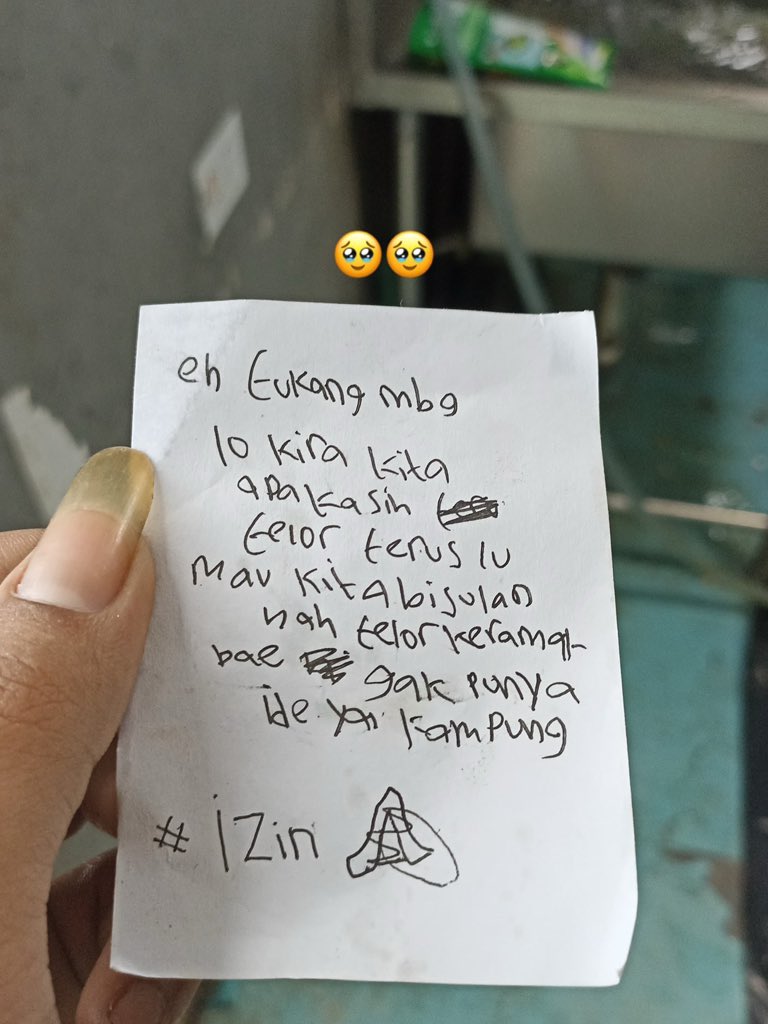 eh tukang mbg
lo kira kita
apa kasih
telor terus lu
mau kita bisulan
nah telor keramat
bae gak punya
ide ya kampung
# izin